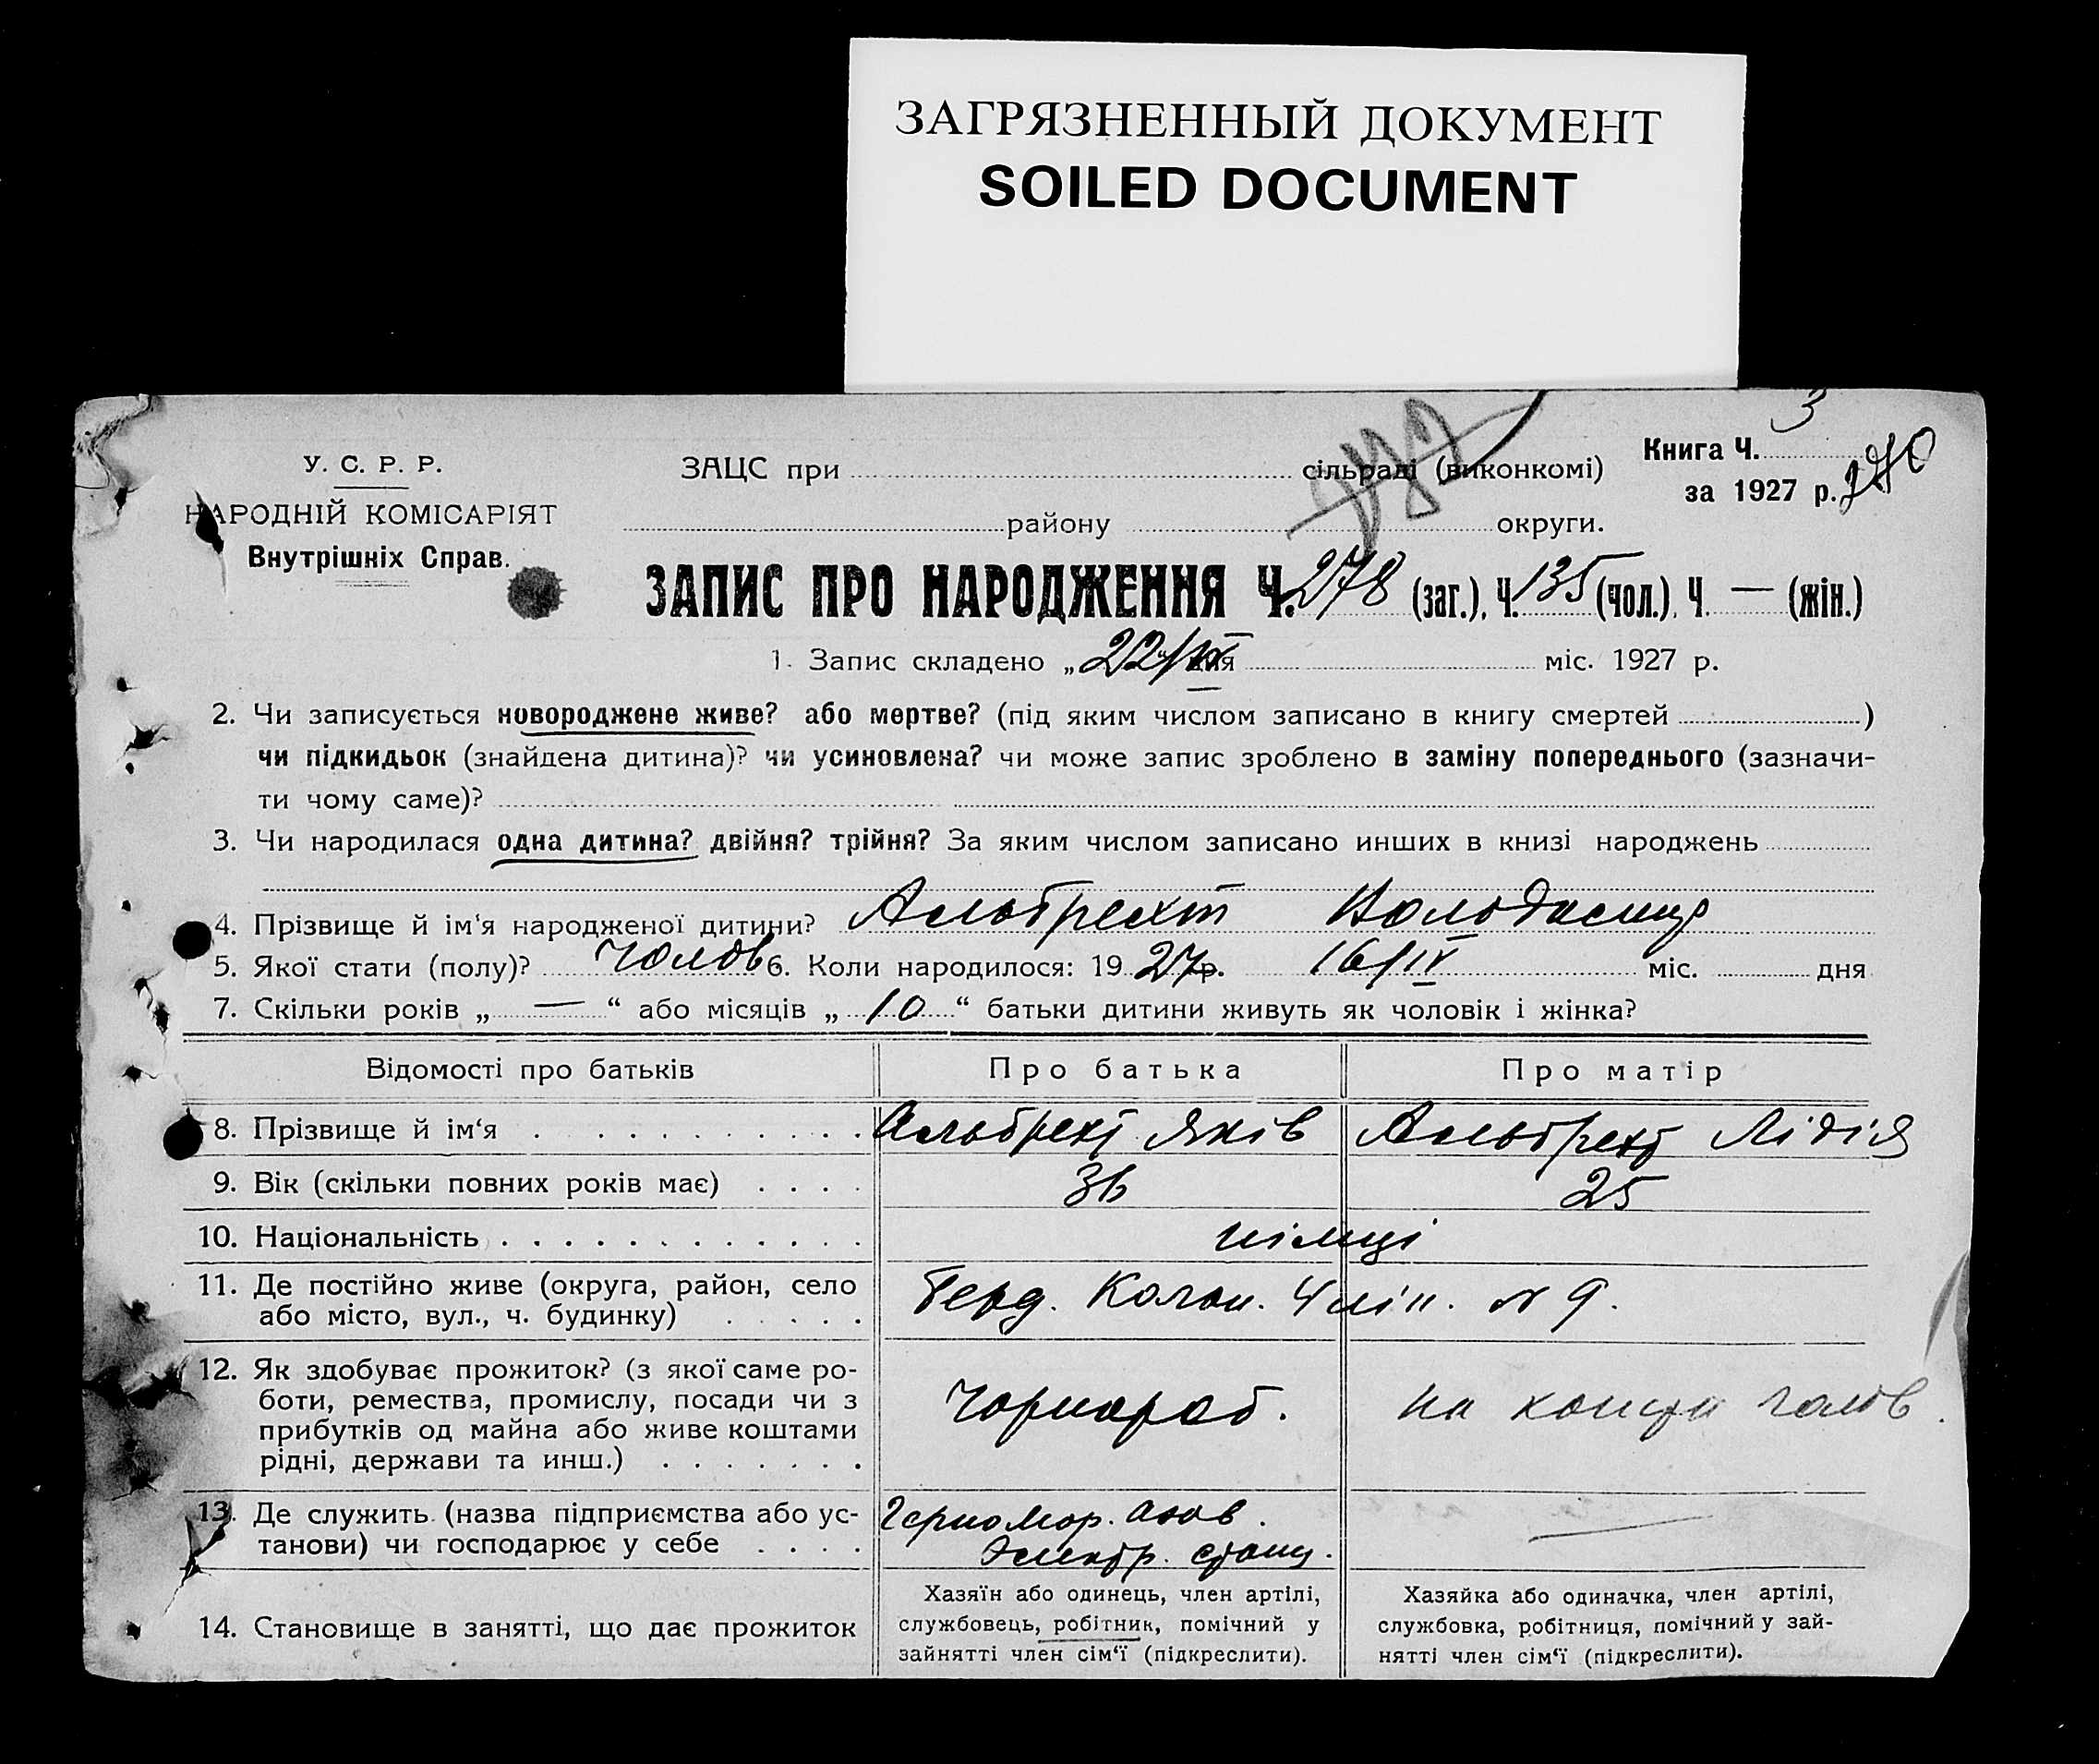 ЗАГРЯЗНЕННЫЙ ДОКУМЕНТ
SOILED DOCUMENT
3
У. С. Р. Р.
НАРОДНІЙ КОМІСАРІЯТ
Внутрішніх Справ.
ЗАЦС при сільраді (виконкомі)
району округи.
Книга Ч.
за 1927 р.
ЗАПИС ПРО НАРОДЖЕННЯ Ч. 278 (заг.), Ч. 135 (чол.), Ч. — (жін.)
1. Запис складено „ 22/IV дня міс. 1927 р.
2. Чи записується новороджене живе? або мертве? (під яким числом записано в книгу смертей )
чи підкидьок (знайдена дитина)? чи усиновлена? чи може запис зроблено в заміну попереднього (зазначи-
ти чому саме)?
3. Чи народилася одна дитина? двійня? трійня? За яким числом записано инших в книзі народжень
4. Прізвище й ім‘я народженої дитини? Альбрехт Володимир
5. Якої стати (полу)? Чолов 6. Коли народилося: 19 27 р. 16/IV міс. дня
7. Скільки років „ — “ або місяців „ 10 “ батьки дитини живуть як чоловік і жінка?
Відомості про батьків Про батька Про матір
8. Прізвище й ім‘я Альбрехт Яків Альбрехт Лідія
9. Вік (скільки повних років має) 36 25
10. Національність німці
11. Де постійно живе (округа, район, село
або місто, вул., ч. будинку)
Берд. Колон. 4 лін. № 9.
12. Як здобуває прожиток? (з якої саме ро-
боти, ремества, промислу, посади чи з
прибутків од майна або живе коштами
рідні, держави та инш.)
Чорнороб. на кошти чолов.
13. Де служить (назва підприємства або ус-
танови) чи господарює у себе
Чорномор. Азов.
Электр. станц.
—
14. Становище в занятті, що дає прожиток
Хазяїн або одинець, член артілі,
службовець, робітник, помічний у
зайнятті член сім‘ї (підкреслити).
Хазяйка або одиначка, член артілі,
службовка, робітниця, помічний у зай-
нятті член сім‘ї (підкреслити).